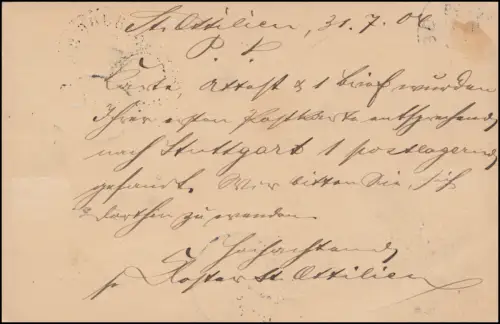 St. Ottilien, 31. 7. 04
P. P.
Karte, Attest & 1 Brief wurden
Ihrer ersten Postkarte entsprechend
nach Stuttgart 1 postlagernd
gesandt. Wir bitten Sie, sich
dorthin zu wenden.
Hochachtend
p. Kloster St. Ottilien